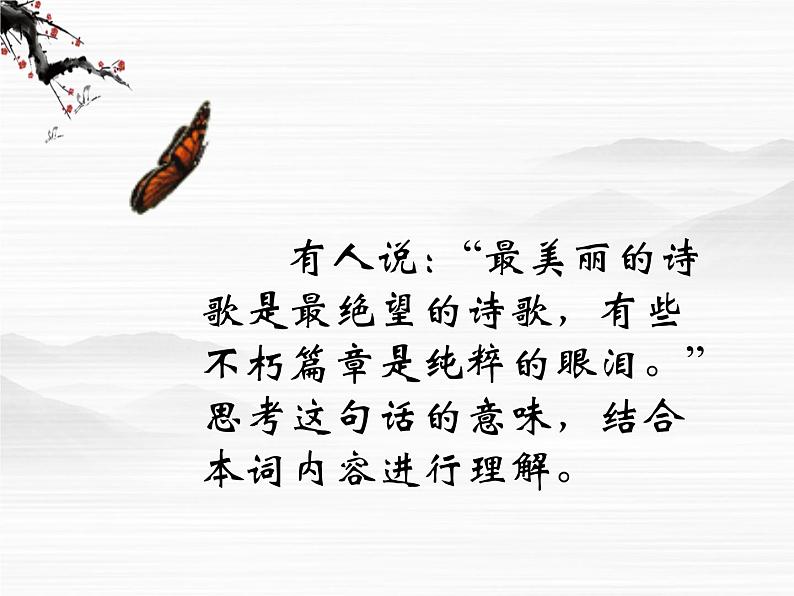 有人说：“最美丽的诗
歌是最绝望的诗歌，有些
不朽篇章是纯粹的眼泪。”
思考这句话的意味，结合
本词内容进行理解。